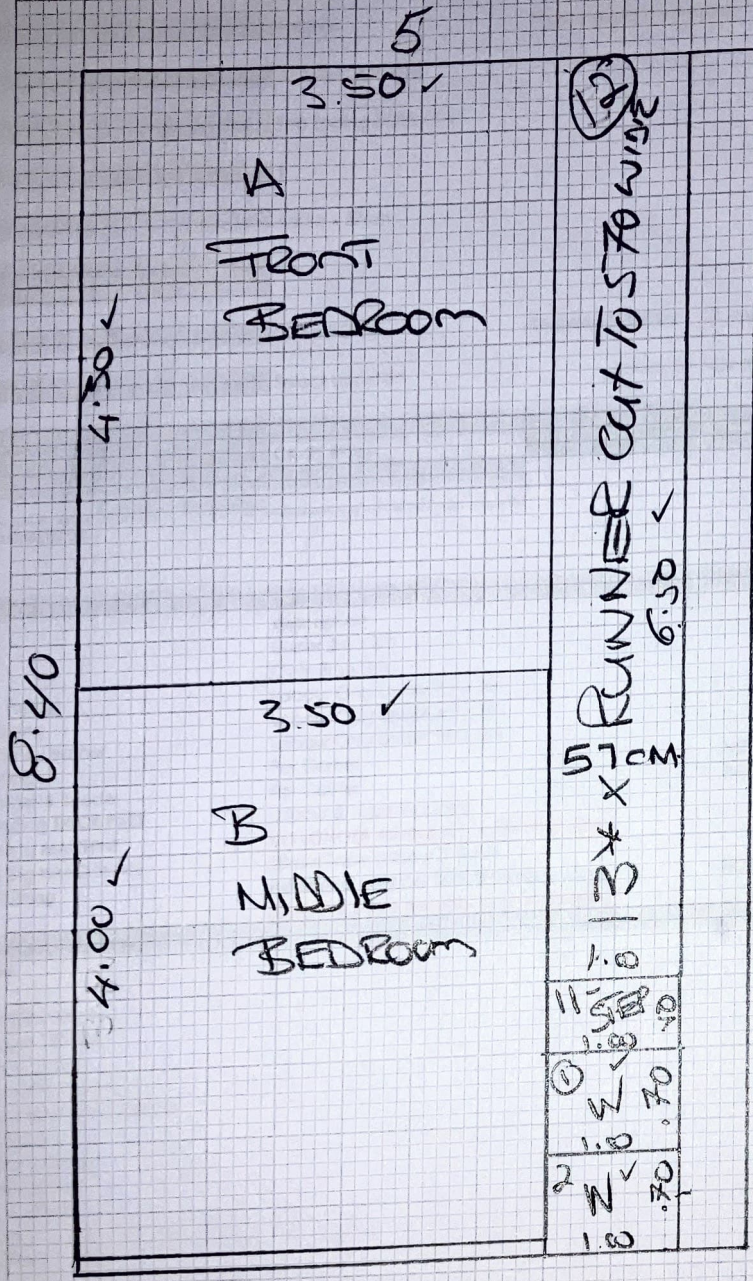 5
3.50 ✓
A
FRONT
BEDROOM
4.30 ✓
8.40
3.50 ✓
B
MIDDLE
BEDROOM
4.00 ✓
12
RUNNER CUT TO 570 WIDE
6.50 ✓
57 CM
1.0
11
1.00
1
.70
1.0
2
.70
1.00